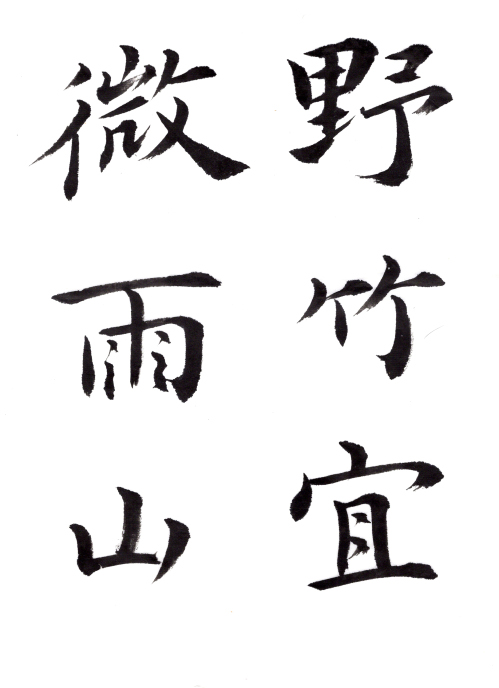 野竹宜
微雨山